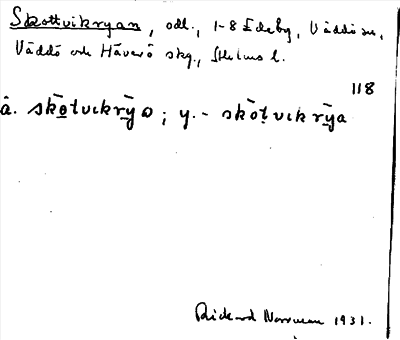 Skottvikryan, odl., 1-8 Edeby, Väddö sn,
Väddö och Häverö skg., Sthlms l.
118
å. skōtvikrȳa; y. - skōtvikrȳa
Rickard Norrman 1931.